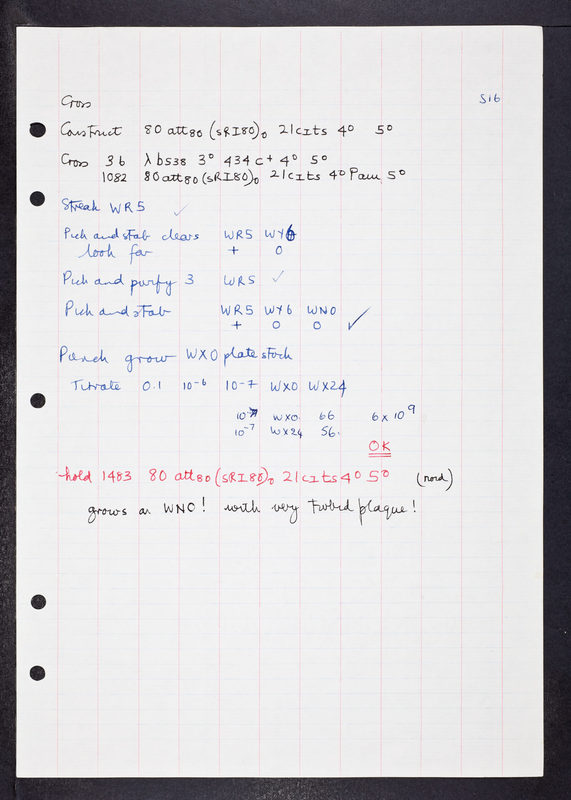 Cross
S16
Construct 80 att80 (sRI80)0 21cIts 4⁰ 5⁰
Cross 36 λ b538 3⁰ 434 c+ 4⁰ 5⁰
1082 80 att80 (sRI80)0 21cIts 4⁰ Pam 5⁰
Streak WR5 ✓
Pick and stab clears WR5 WY6
look for + 0
Pick and purify 3 WR5 ✓
Pick and stab WR5 WY6 WNO
+ 0 0 ✓
grow WXO plate stock
Titrate 0.1 10⁻⁶ 10⁻⁷ WXO WX24
10⁻⁷ WXO. 66 6 x 10⁹
10⁻⁷ WX24 56.
OK
hold 1483 80 att80 (sRI80)0 21cIts 4⁰ 5⁰
grows on WNO! with very turbid plaque!